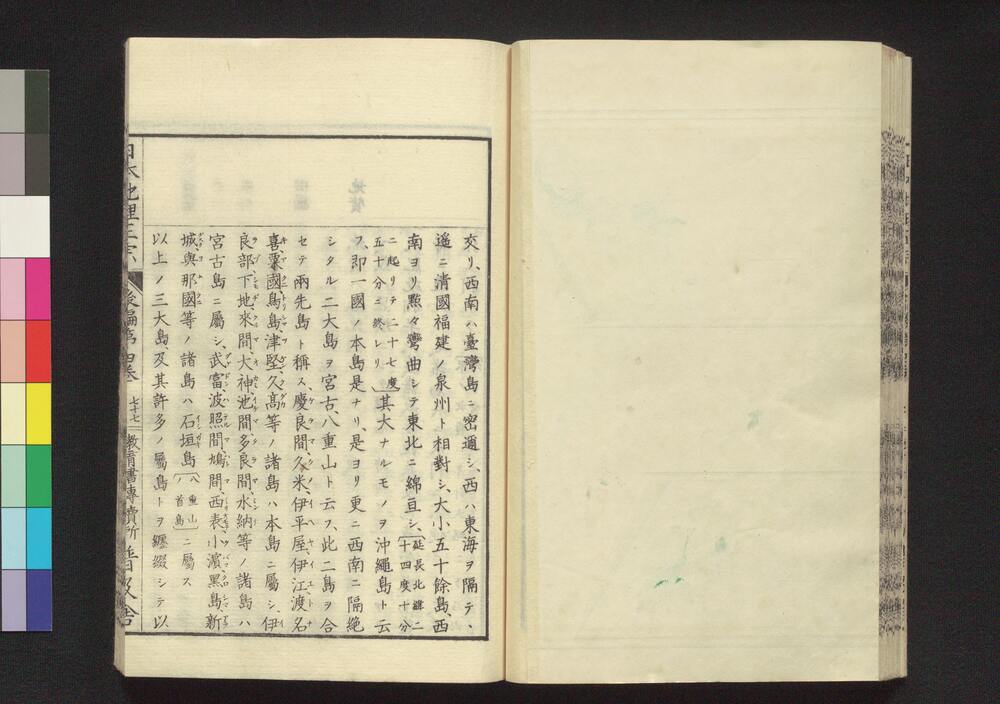 交リ、西南ハ臺灣島ニ密邇シ、西ハ東海ヲ隔テ、
遥ニ清國福建ノ泉州ト相對シ、大小五十餘島、西
南ヨリ㸃々彎曲シテ東北ニ綿亘シ、〔延長北緯二十四度十分
ニ起リテ二十七度五十分ニ終レリ〕其大ナルモノヲ沖繩島ト云
フ、即一國ノ本島是ナリ、是ヨリ更ニ西南ニ隔絶
シタル二大島ヲ宮古、八重山ト云フ、此二島ヲ合
セテ兩先島ト稱ス、慶良間、久米、伊平屋、伊江、渡名
喜、粟國、鳥島、津堅、久髙等ノ諸島ハ本島ニ屬シ、伊
良部、下地、來間、大神、池間、多良間、水納等ノ諸島ハ
宮古島ニ屬シ、武富、波照間、鳩間、西表、小濵、黒島、新
城、與那國等ノ諸島ハ石垣島〔八重山ノ首島〕ニ屬ス
以上ノ三大島及其許多ノ屬島トヲ纏綴シテ以
日本地理正宗 後編第四卷 七十七 教育書專賣所 普及舎